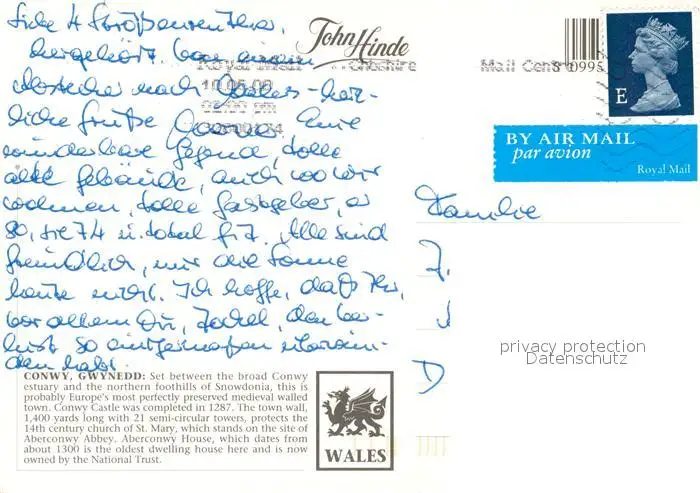 Liebe 4 Straßenrenther,
hergehört. Von einem
Abstecher nach Wales - herz-
liche Grüße Eine
wunderbare Gegend, tolle
alte Gebäude, auch wo wir
wohnen, tolle Gastgeber, er
80, sie 74 u. total fit. Alle sind
freundlich, nur die Sonne
heute nicht. Ich hoffe, daß Ihr,
vor allem Du, den Ver-
lust so einigermaßen überwun-
den habt.
CONWY, GWYNEDD: Set between the broad Conwy
estuary and the northern foothills of Snowdonia, this is
probably Europe's most perfectly preserved medieval walled
town. Conwy Castle was completed in 1287. The town wall,
1,400 yards long with 21 semi-circular towers, protects the
14th century church of St. Mary, which stands on the site of
Aberconwy Abbey. Aberconwy House, which dates from
about 1300 is the oldest dwelling house here and is now
owned by the National Trust.
WALES
John Hinde
Royal Mail Cheshire Mail Centre
10.05.00
S 0995
E
BY AIR MAIL
par avion
Royal Mail
Familie
D
privacy protection
Datenschutz